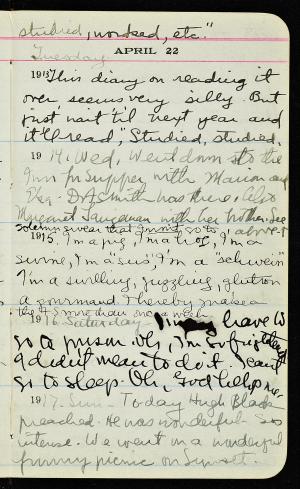 studied, worked, etc."
APRIL 22
Tuesday.
1913 This diary on reading it
over, seems very silly. But
just wait 'til next year and
it'll read, "Studied, studied,
1914. Wed. Went down to the
Inn for supper with Marion and
Dr. A. Smith was there. Also
Margaret with her brother. See
solemn swear that I go to above
1915. I'm a pig, I'm a hog, I'm a
swine, I'm a "sus", I'm a "schwein"
I'm a swilling, guzzling, glutton
a gourmand. I hereby make a
more than once a week
1916. Saturday - I may have to
go to prison. Oh, I'm so frightened
I didn't mean to do it. I can't
go to sleep. Oh, God help me.
1917. Sun - Today Hugh Black
preached. He was wonderful - so
intense. We went on a wonderful
funny picnic on Sunset.